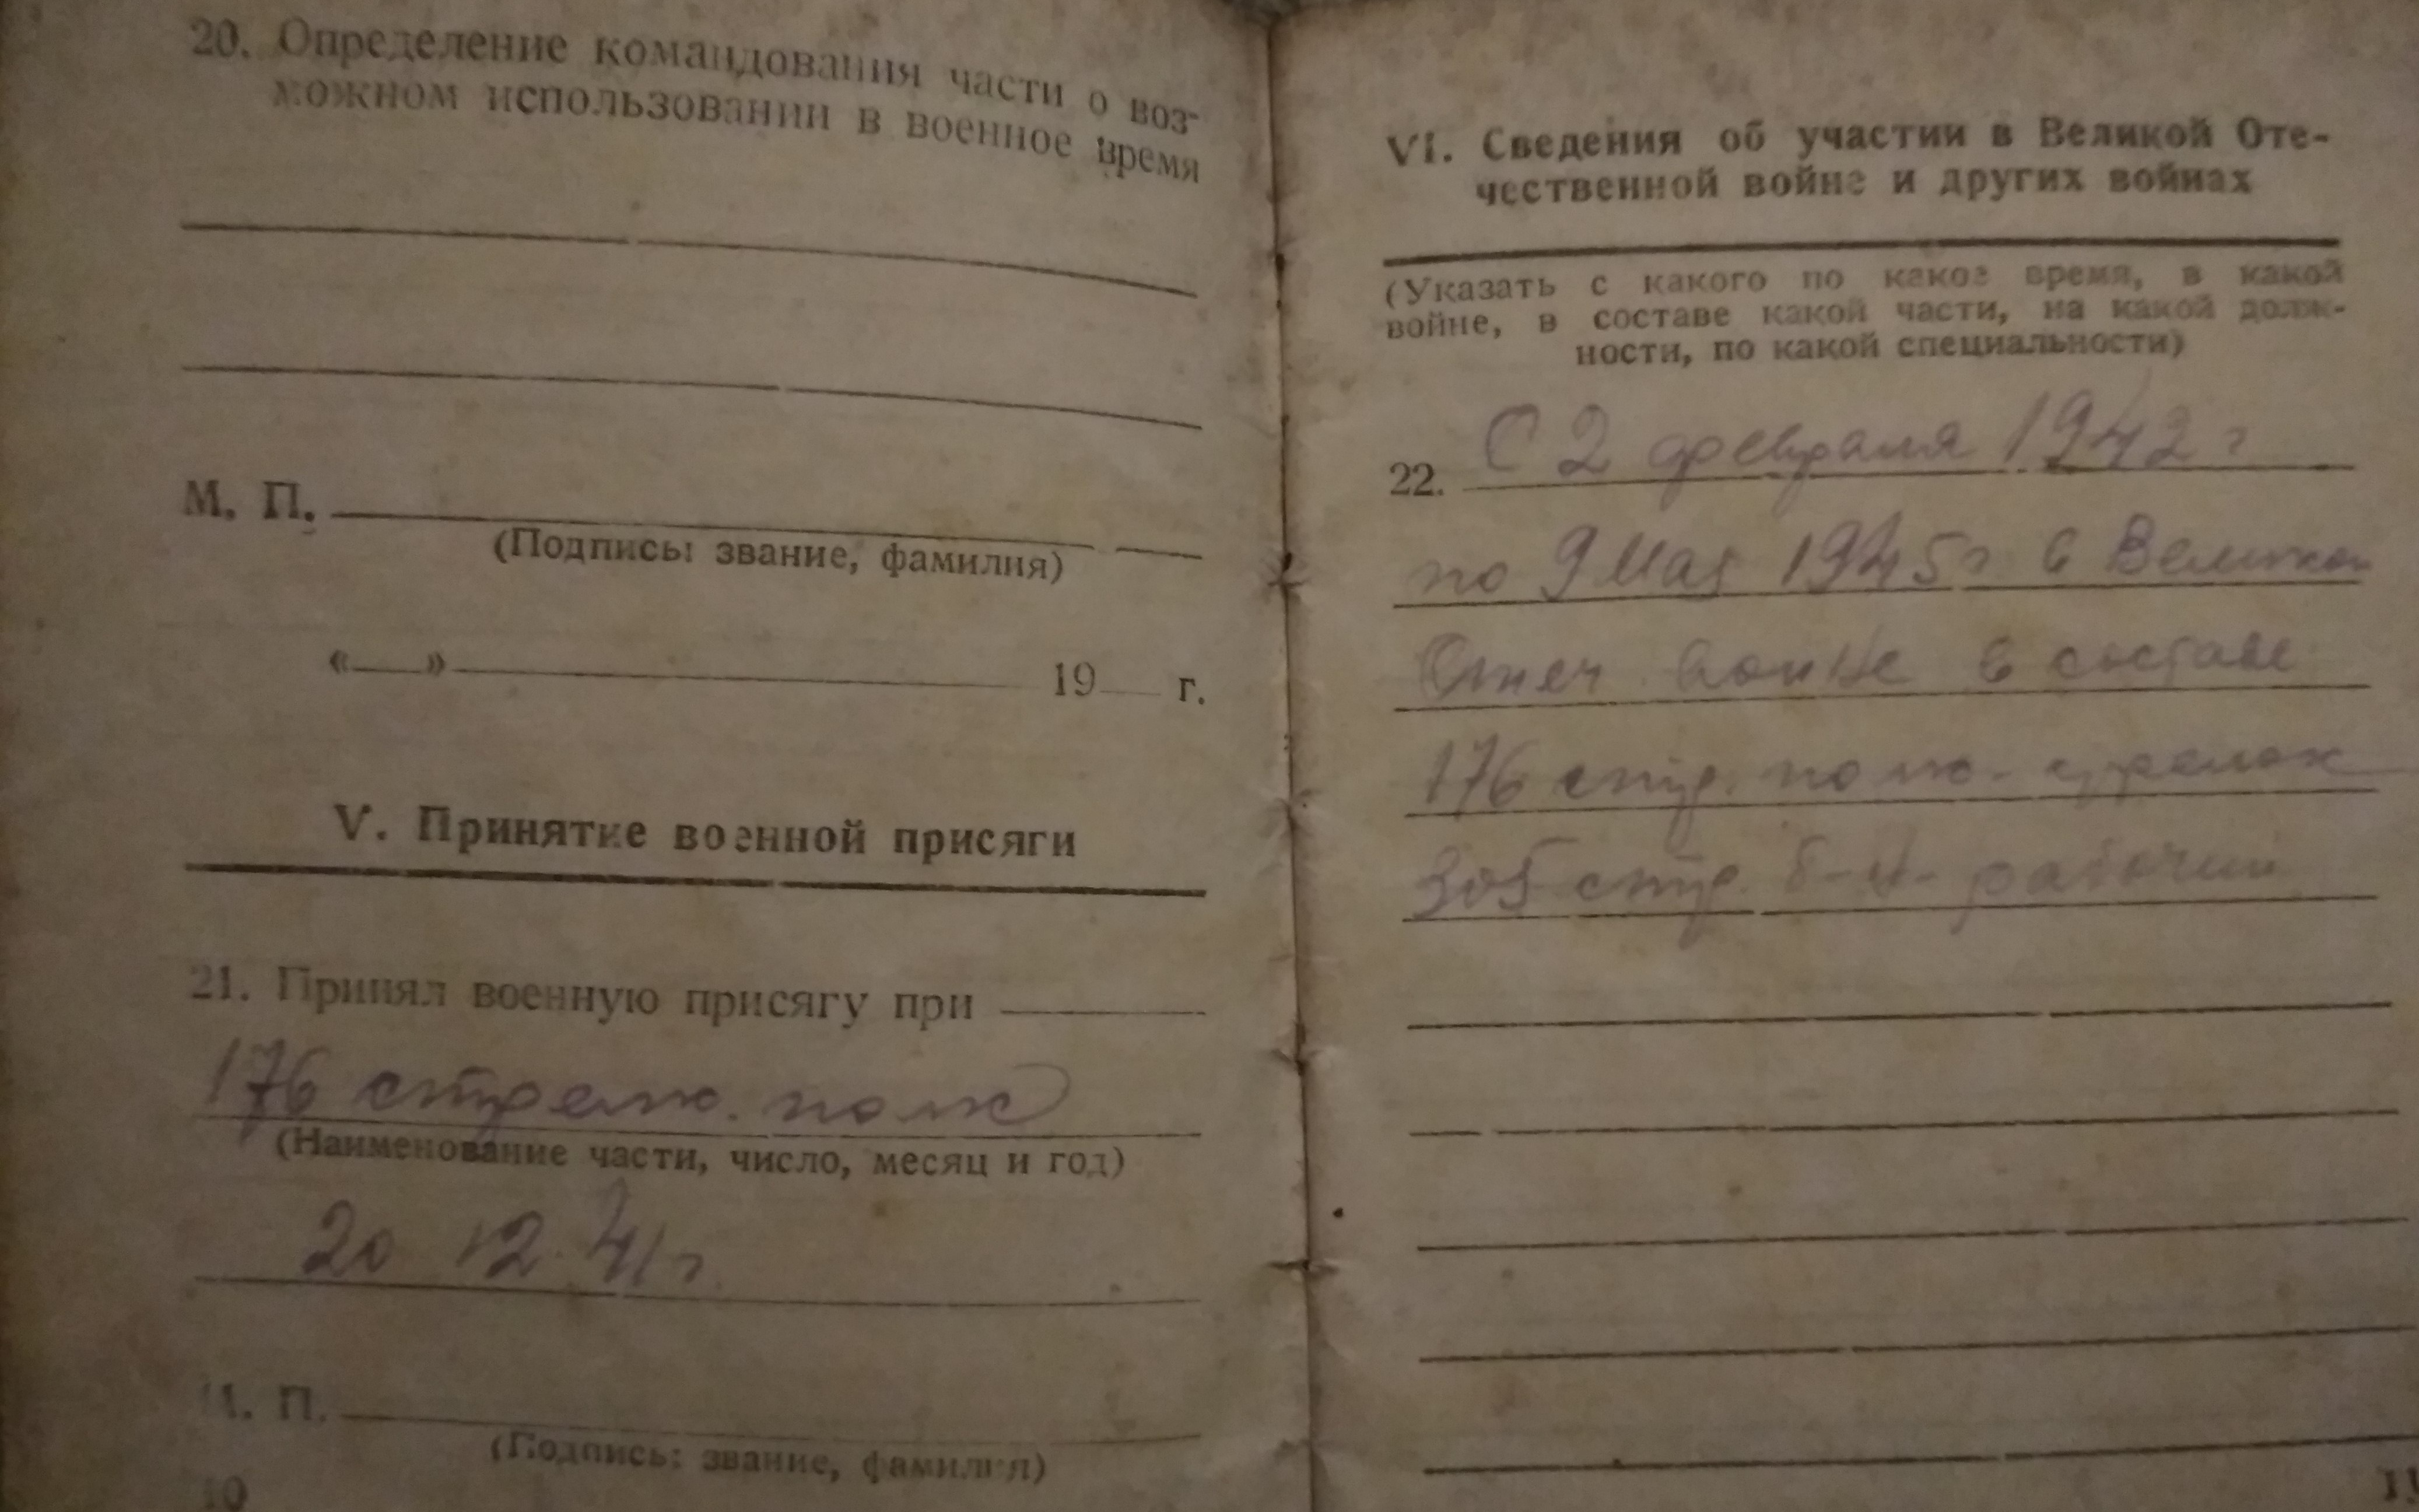 20. Определение командования части о воз-
можном использовании в военное время
М. П.
(Подпись: звание, фамилия)
«  »  19  г.
V. Принятие военной присяги
21. Принял военную присягу при
176 стрелк. полк
(Наименование части, число, месяц и год)
20 12. 41 г.
М. П.
(Подпись: звание, фамилия)
10
VI. Сведения об участии в Великой Оте-
чественной войне и других войнах
(Указать с какого по какое время, в какой
войне, в составе какой части, на какой долж-
ности, по какой специальности)
22. С 2 февраля 1942 г
по 9 Мая 1945 г в Великой
Отеч войне в составе
176 стр. полк. стрелок
305 стр. б-н. рабочий
11